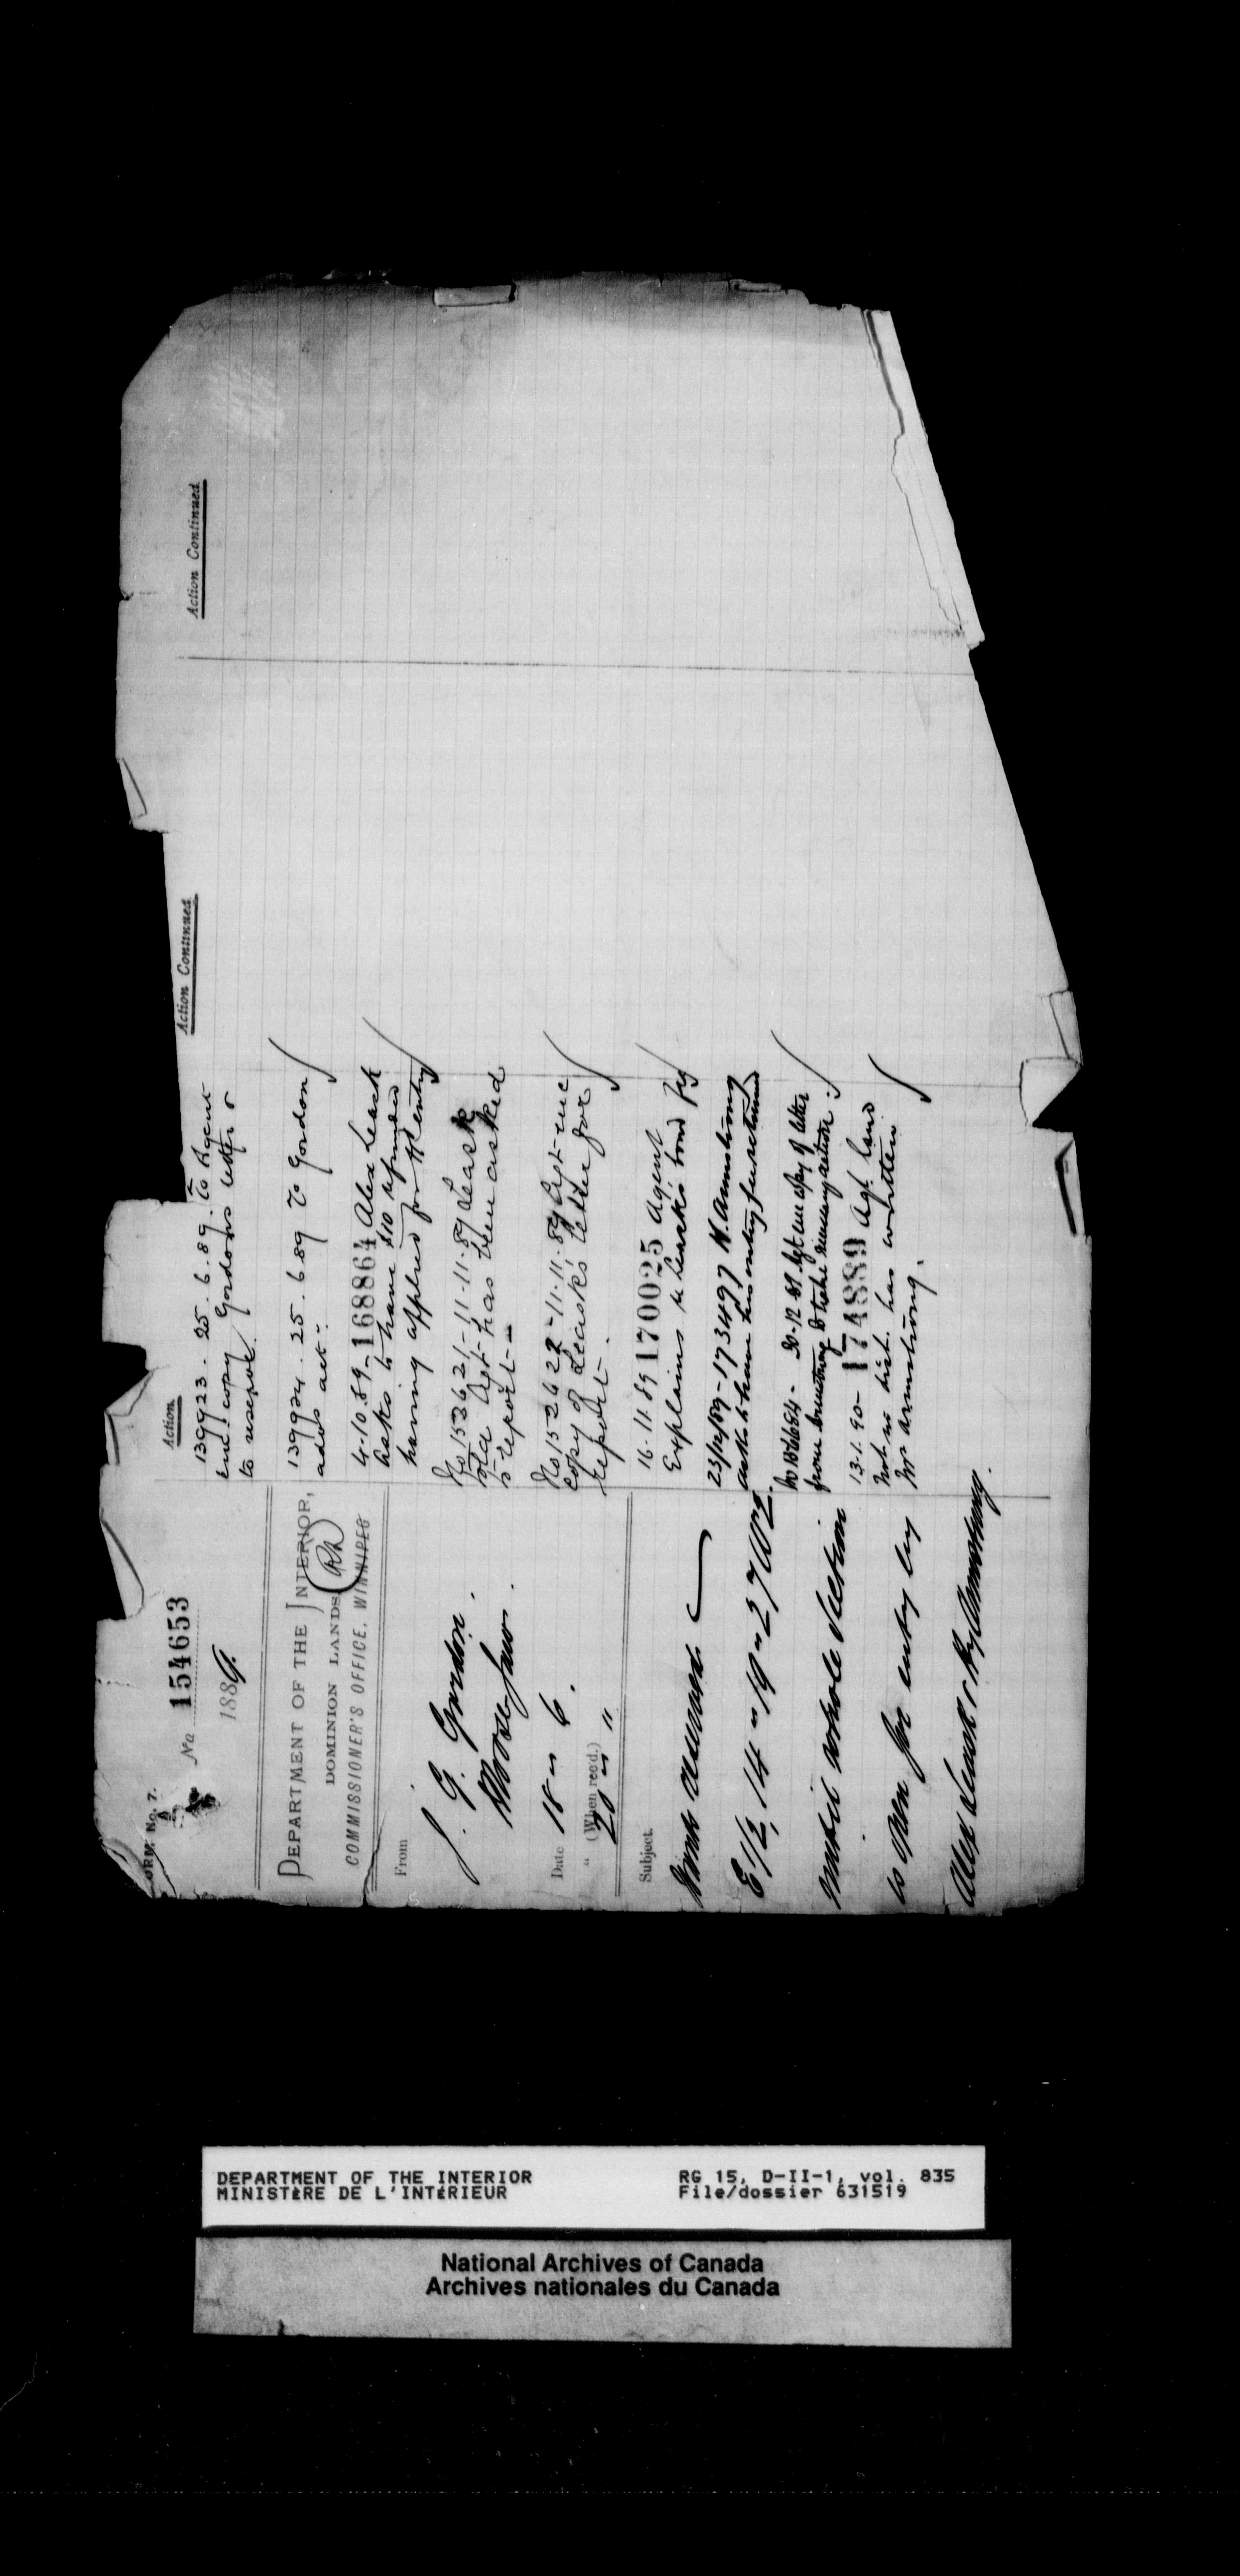 FORM No. 7.
No 154653
1889.
DEPARTMENT OF THE INTERIOR,
DOMINION LANDS
COMMISSIONER'S OFFICE, WINNIPEG
From
J. G. Gordon.
Moose Jaw.
Date 18 " 6.
" (When rec'd.)
20 " "
Subject.
E 1/2, 14 " 19 " 27 W 2.
until whole Section
is open for entry by
Alex Leask & Hy Armstrong.
Action
139923. 25.6.89. To Agent
enc. copy Gordons letter &
to report.
139924. 25.6.89 To Gordon
adv's act:
4.10.89-168864 Alex Leask
asks to have $10 refunded
having applied for Hd entry
No 152621-11-11-89 Leask
told Agt has been asked
to report-
No 152622-11-11.89 Agt enc
copy of Leask's letter for
report.
16.11.89 170025 Agent
Explains re Leask's
23/12/89-173497 H. Armstrong
asks to have his entry fee returned
30-12-89 Agt enc copy of letter
from Armstrong to take necessary action.
13.1.90- 174889 Agt. Land
not in dist. has written
Mr Armstrong.
Action Continued
Action Continued
DEPARTMENT OF THE INTERIOR
MINISTÈRE DE L'INTÉRIEUR
RG 15, D-II-1, vol. 835
File/dossier 631519
National Archives of Canada
Archives nationales du Canada